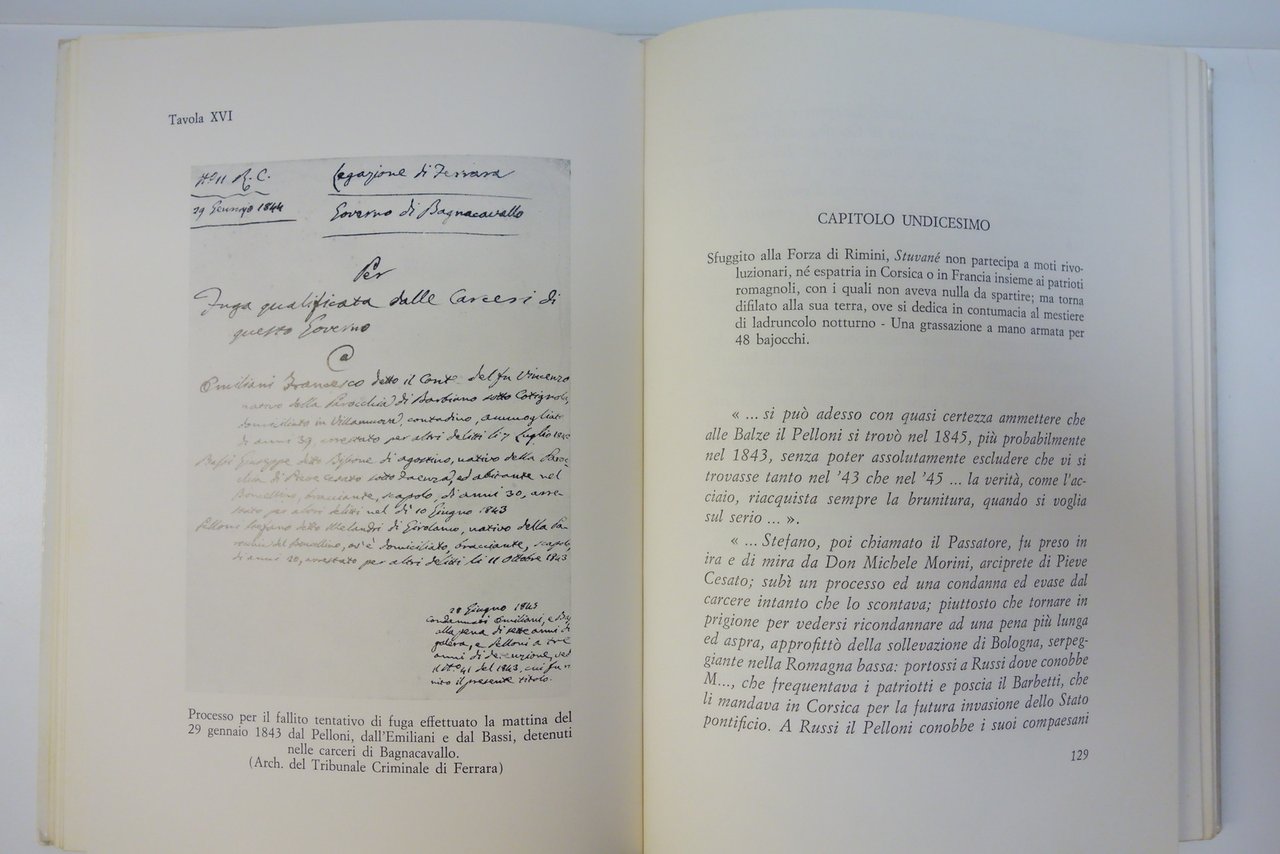 Tavola XVI
N.° 11 R. C.
29 Gennajo 1844
Legazione di Ferrara
Governo di Bagnacavallo
Per
Fuga qualificata dalle Carceri di
questo Governo
Emiliani Francesco detto il Conte del fu Vincenzo
nativo della Parocchia di Barbiano sotto Cotignola,
domiciliato in Villanuova, contadino, ammogliato
di anni 39, arrestato per altri delitti li 7 Luglio
Bassi Giuseppe detto di Agostino, nativo della Paroc-
chia di Pieve Cesato sotto Faenza, ed abitante nel
Boncellino, bracciante, scapolo, di anni 30, arre-
stato per altri delitti nel dì 10 Giugno 1843
Pelloni Stefano detto di Girolamo, nativo della Pa-
del Boncellino, ov'è domiciliato, bracciante, scapolo,
di anni 20, arrestato per altri delitti li 11 Ottobre 1843
28 Giugno 1843
condannati Emiliani, e
alla pena di sette anni di
galera, e Pelloni a tre
anni di detenzione,
il N.° 41 del 1843, cui fu
nito il presente titolo.
Processo per il fallito tentativo di fuga effettuato la mattina del
29 gennaio 1843 dal Pelloni, dall'Emiliani e dal Bassi, detenuti
nelle carceri di Bagnacavallo.
(Arch. del Tribunale Criminale di Ferrara)
CAPITOLO UNDICESIMO
Sfuggito alla Forza di Rimini, Stuvané non partecipa a moti rivo-
luzionari, né espatria in Corsica o in Francia insieme ai patrioti
romagnoli, con i quali non aveva nulla da spartire; ma torna
difilato alla sua terra, ove si dedica in contumacia al mestiere
di ladruncolo notturno - Una grassazione a mano armata per
48 bajocchi.
« ... si può adesso con quasi certezza ammettere che
alle Balze il Pelloni si trovò nel 1845, più probabilmente
nel 1843, senza poter assolutamente escludere che vi si
trovasse tanto nel '43 che nel '45 ... la verità, come l'ac-
ciaio, riacquista sempre la brunitura, quando si voglia
sul serio ... ».
« ... Stefano, poi chiamato il Passatore, fu preso in
ira e di mira da Don Michele Morini, arciprete di Pieve
Cesato; subì un processo ed una condanna ed evase dal
carcere intanto che lo scontava; piuttosto che tornare in
prigione per vedersi ricondannare ad una pena più lunga
ed aspra, approfittò della sollevazione di Bologna, serpeg-
giante nella Romagna bassa: portossi a Russi dove conobbe
M..., che frequentava i patriotti e poscia il Barbetti, che
li mandava in Corsica per la futura invasione dello Stato
pontificio. A Russi il Pelloni conobbe i suoi compaesani
129